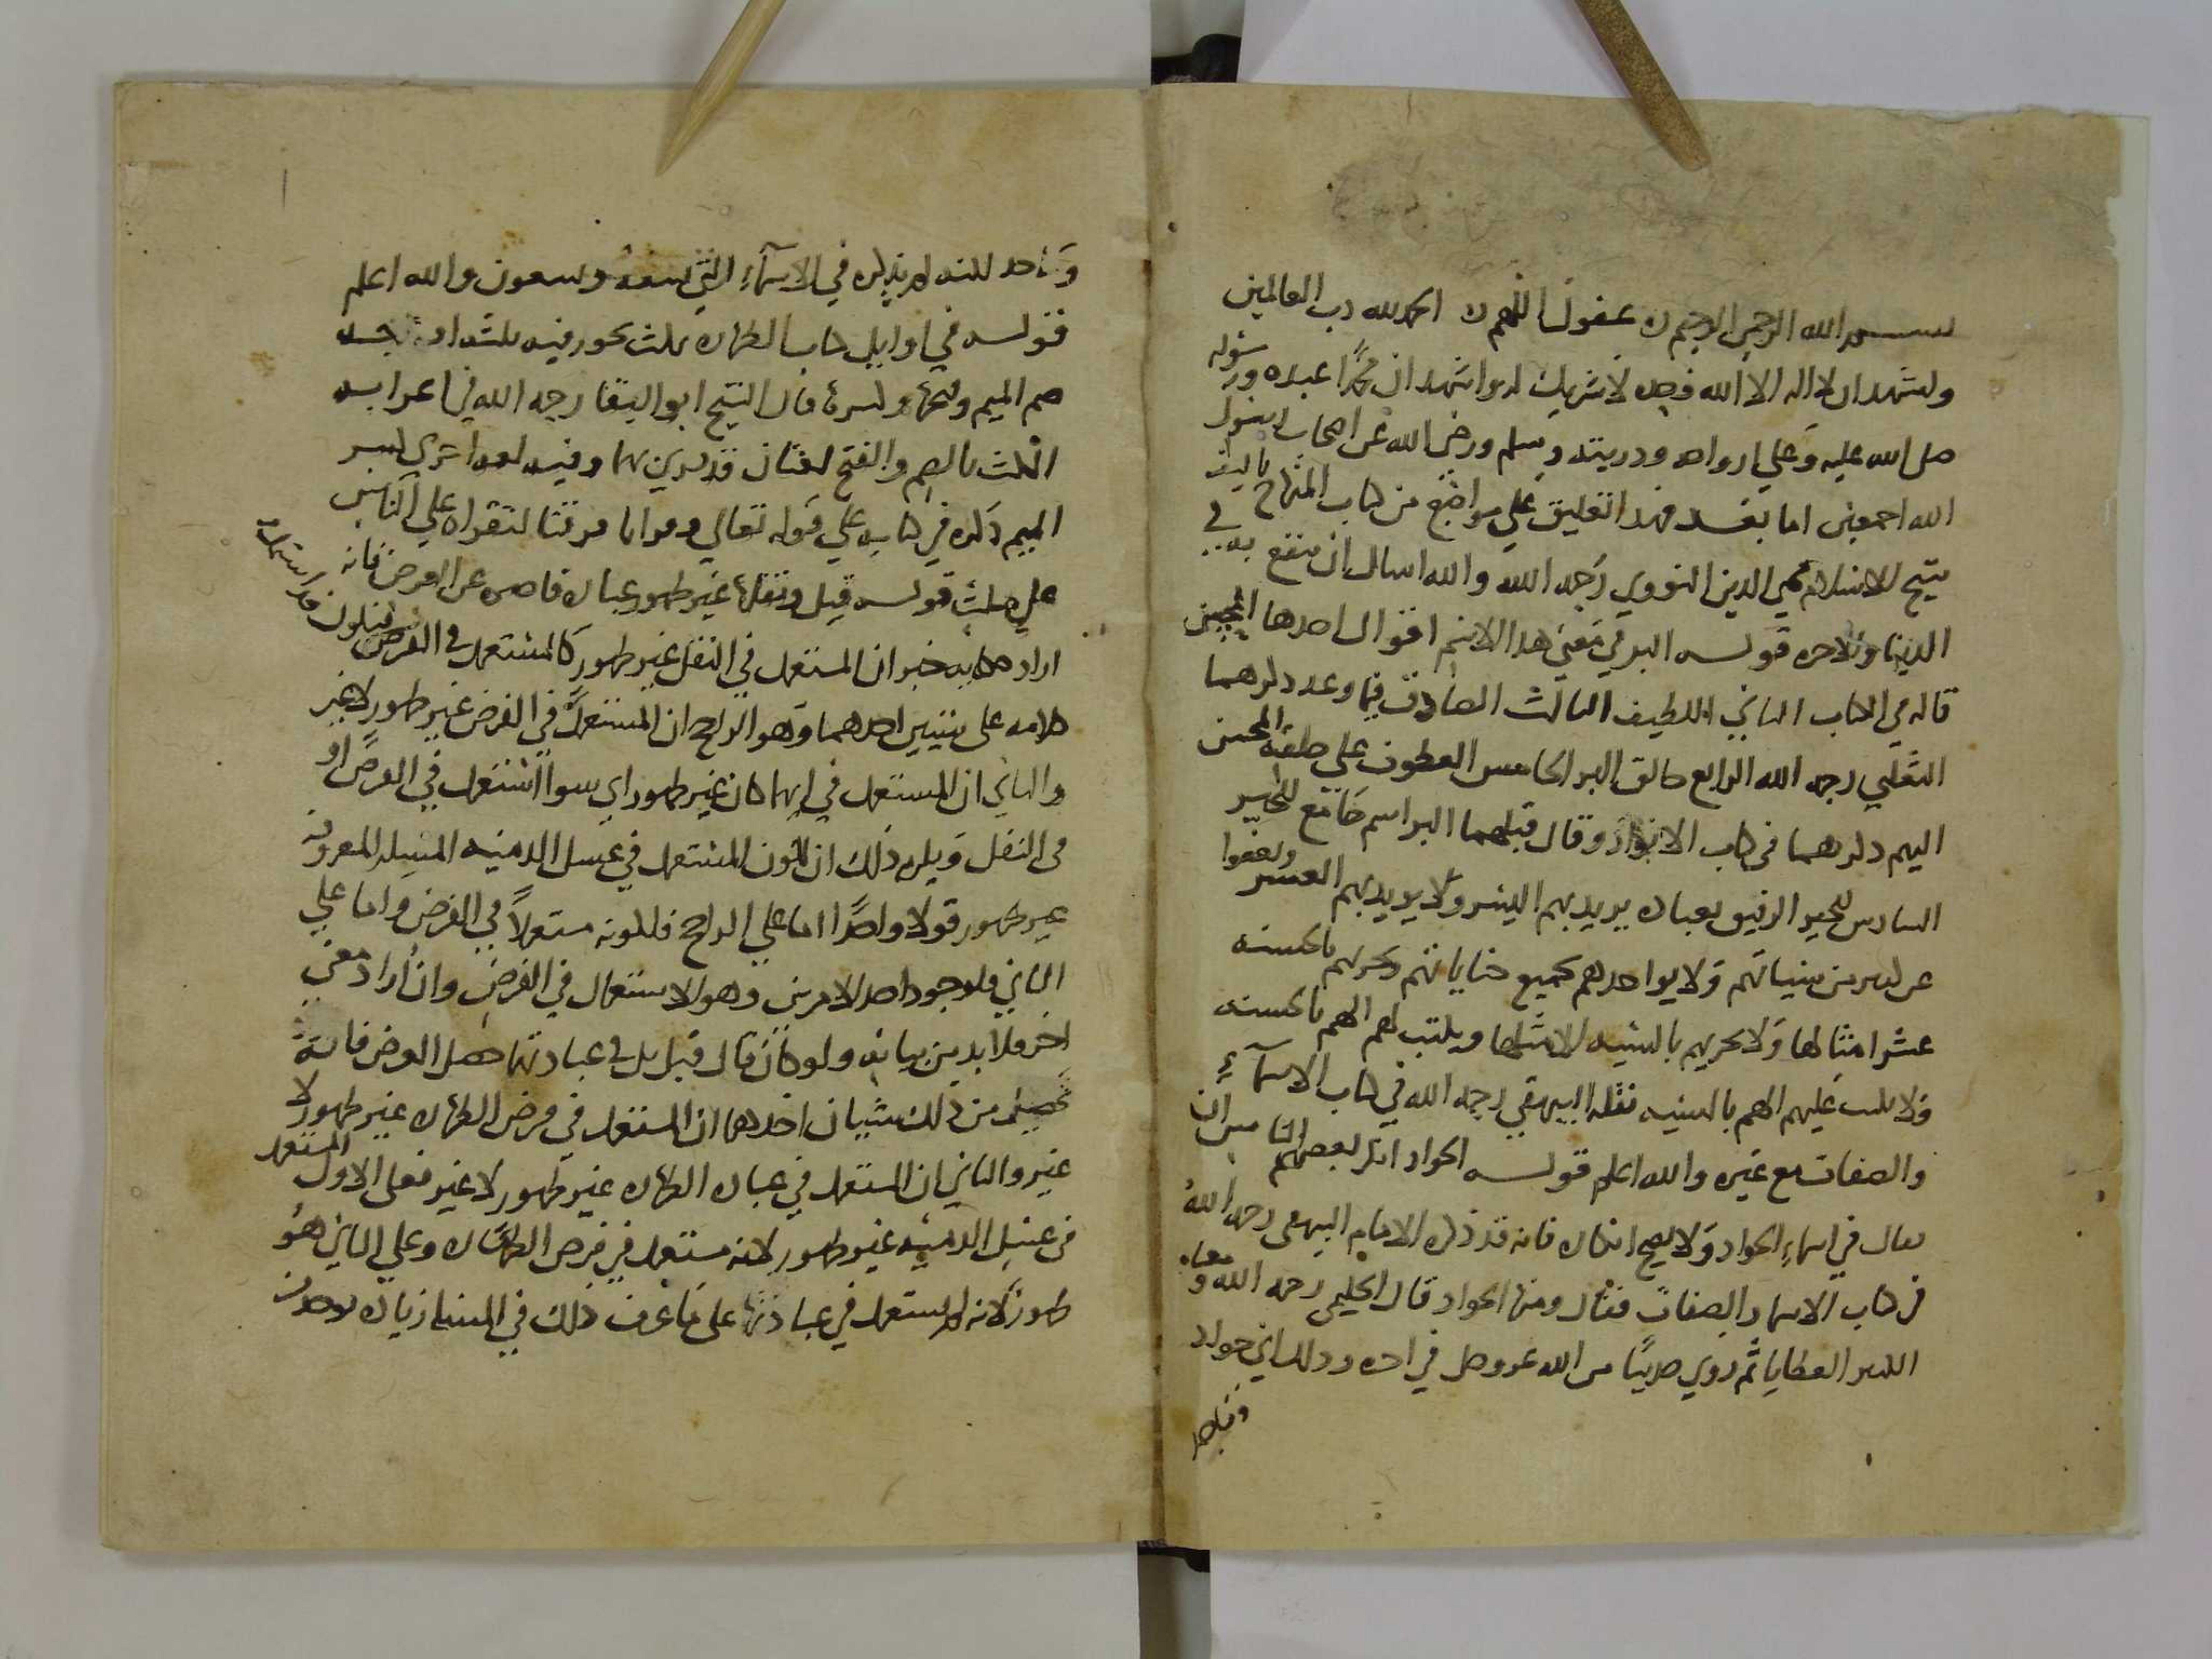 بسم الله الرحمن الرحيم عفوك اللهم الحمد لله رب العالمين
واشهد ان لا اله الا الله وحده لا شريك له واشهد ان محمدًا عبده ورسوله
صلى الله عليه وعلي ازواجه وذريته وسلم ورضي الله عن اصحاب رسول
الله اجمعين اما بعد فهذا تعليق علي مواضع من كتاب المنهاج تاليف
شيخ الاسلام محيي الدين النووي رحمه الله والله اسال ان ينفع به في
الدنيا والاخره قوله البر في معني هذا الاسم اقوال احدها المحسن
قاله في الكتاب الثاني اللطيف الثالث الصادق فيما وعد ذكرهما
الثعلبي رحمه الله الرابع خالق البر الخامس العطوف علي خلقه المحسن
اليهم ذكرهما في كتاب الانوار وقال قبلهما البر اسم جامع للخير
السادس الرفيق بعباده يريد بهم اليسر ولا يريد بهم العسر ويعفوا
عن كثير من سيئاتهم ولا يواخذهم بجميع جناياتهم ويجزيهم بالحسنه
عشر امثالها ولا يجزيهم بالسيه الا مثلها ويكتب لهم الهم بالحسنه
ولا يكتب عليهم الهم بالسيه نقله البيهقي رحمه الله في كتاب الاسماء
والصفات مع غيره والله اعلم قوله الجواد انكر بعضهم الناس ان
يقال في اسماء الجواد ولا يصح انكاره فانه قد ذكره الامام البيهقي رحمه الله
في كتاب الاسما والصفات فقال ومنها الجواد قال الحليمي رحمه الله ومعناه
الكثير العطايا ثم روي حديثًا عن الله عز وجل في اخره وذلك اني جواد
وماجد
لم يذكره في الاسماء التي تسعه وتسعون والله اعلم
قوله في اوايل كتاب الطهاره مكث يجوز فيه ثلثه اوجه
ضم الميم وفتحها وكسرها قال الشيخ ابو البقا رحمه الله في اعرابه
المكث بالضم والفتح لغتان قد قري بهما وفيه لغه اخري كسر
الميم ذكره في كتابه علي قوله تعالي وقرانا فرقناه لتقراه علي الناس
علي مكث قوله قيل ونفلها غير طهور عباره قاصره عن الغرض فانه
اراد حكايه خبر ان المستعمل في النفل غير طهور كالمستعمل في الفرض
كلامه على شيئين احدهما وهو الراجح ان المستعمل في الفرض غير طهور لا غير
والثاني ان المستعمل في ايهما كان غير طهور اي سوا استعمل في الفرض او
في النفل ويلزم ذلك ان يكون المستعمل في غسل الذميه المسيله المعروفه
غير طهور قولا واحدًا اما علي الراجح فلكونه مستعملاً في الفرض واما علي
الثاني فلوجود احد الامرين وهو الاستعمال في الفرض وان اراد معني
اخر فلا بد من بيانه ولو كان قال قبل بل في عبادتها حصل الغرض فانه
يحصل من ذلك شيان احدهما ان المستعمل في فرض الطهاره غير طهور لا
غير والثاني ان المستعمل في عباده الطهاره غير طهور لا غير فعلى الاول المستعمل
في غسل الذميه غير طهور لانه مستعمل في فرض الطهاره وعلي الثاني هو
طهور لانه لم يستعمل في عبادتها على ما عرف ذلك في المسله زياده